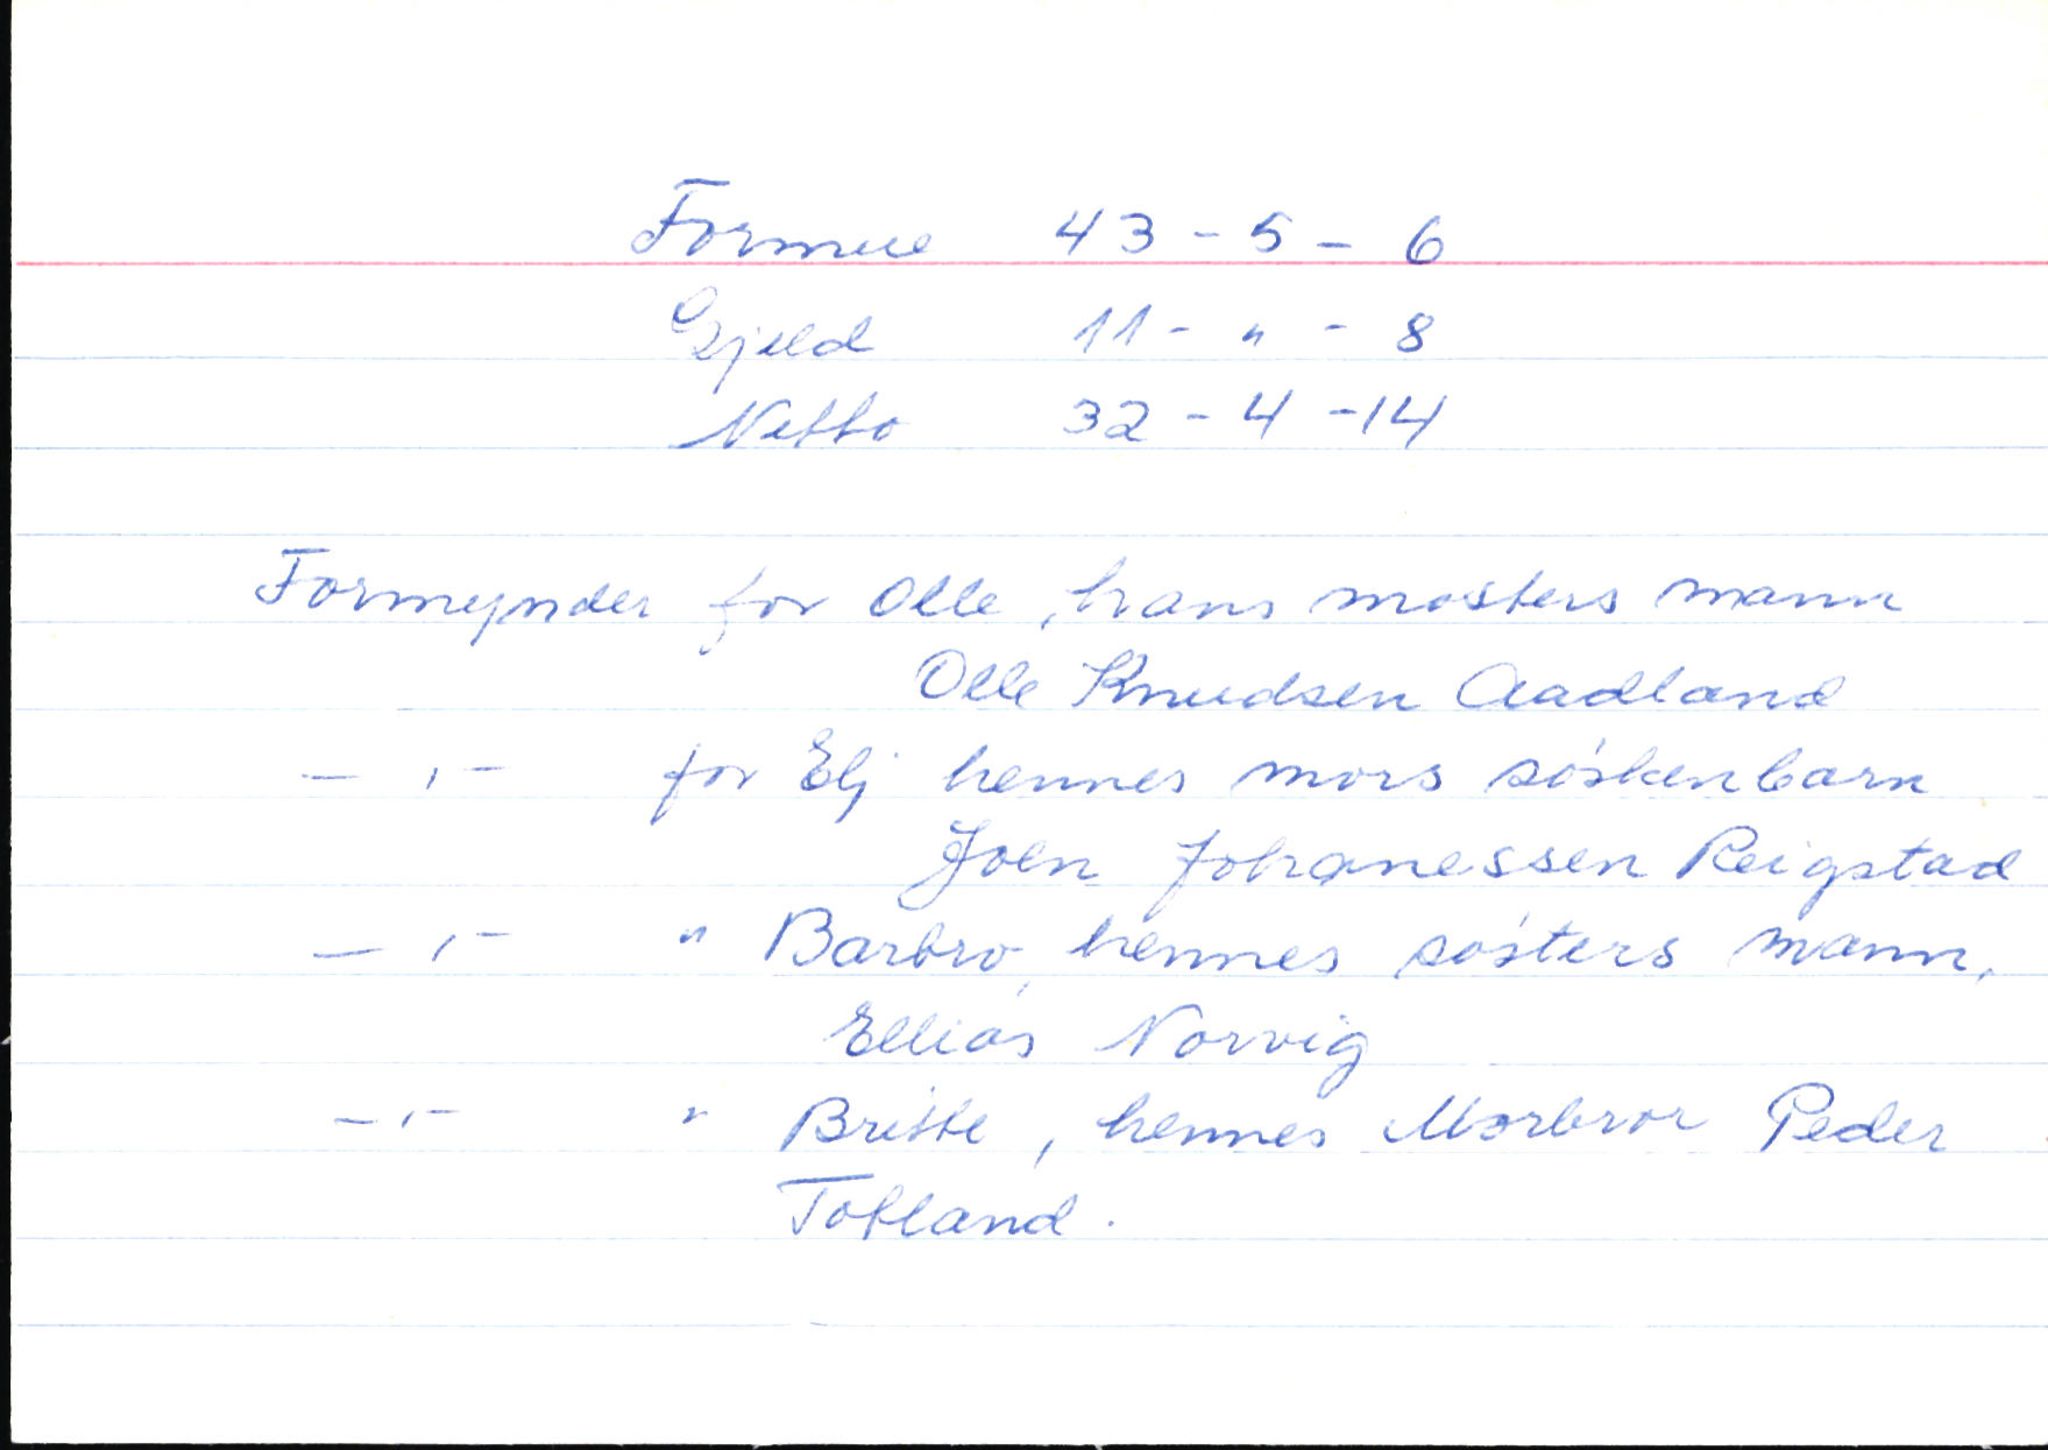 Formue 43 - 5 - 6
Gjeld 11 - " - 8
Netto 32 - 4 - 14
Formynder for Olle, hans mosters mann
Olle Knudsen Aadland
— , — for Elj hennes mors söskenbarn
Joen Johanessen Reigstad
— , — " Barbro, hennes sösters mann,
Ellias Norvig
— , — " Britte, hennes Morbror Peder
Tofland.